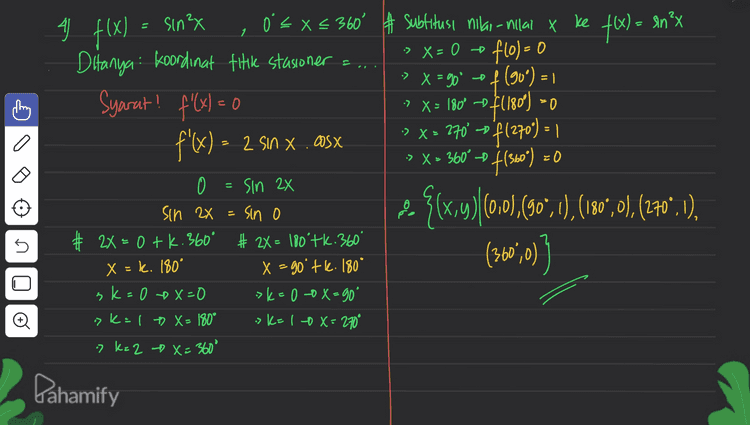 4) f(x) = sin²x , 0° ≤ x ≤ 360°
Ditanya : koordinat titik stasioner = ...
Syarat! f'(x) = 0
f'(x) = 2 sin x . cos x
0 = sin 2x
sin 2x = sin 0
# 2x = 0 + k.360°
x = k. 180°
> k = 0 → x = 0
> k = 1 → x = 180°
> k = 2 → x = 360°
# 2x = 180° + k.360°
x = 90° + k. 180°
> k = 0 → x = 90°
> k = 1 → x = 270°
# Subtitusi nilai-nilai x ke f(x) = sin²x
> x = 0 → f(0) = 0
> x = 90° → f(90°) = 1
> x = 180° → f(180°) = 0
> x = 270° → f(270°) = 1
> x = 360° → f(360°) = 0
∴ {(x,y)|(0,0),(90°,1),(180°,0),(270°,1),
(360°,0)}
Pahamify